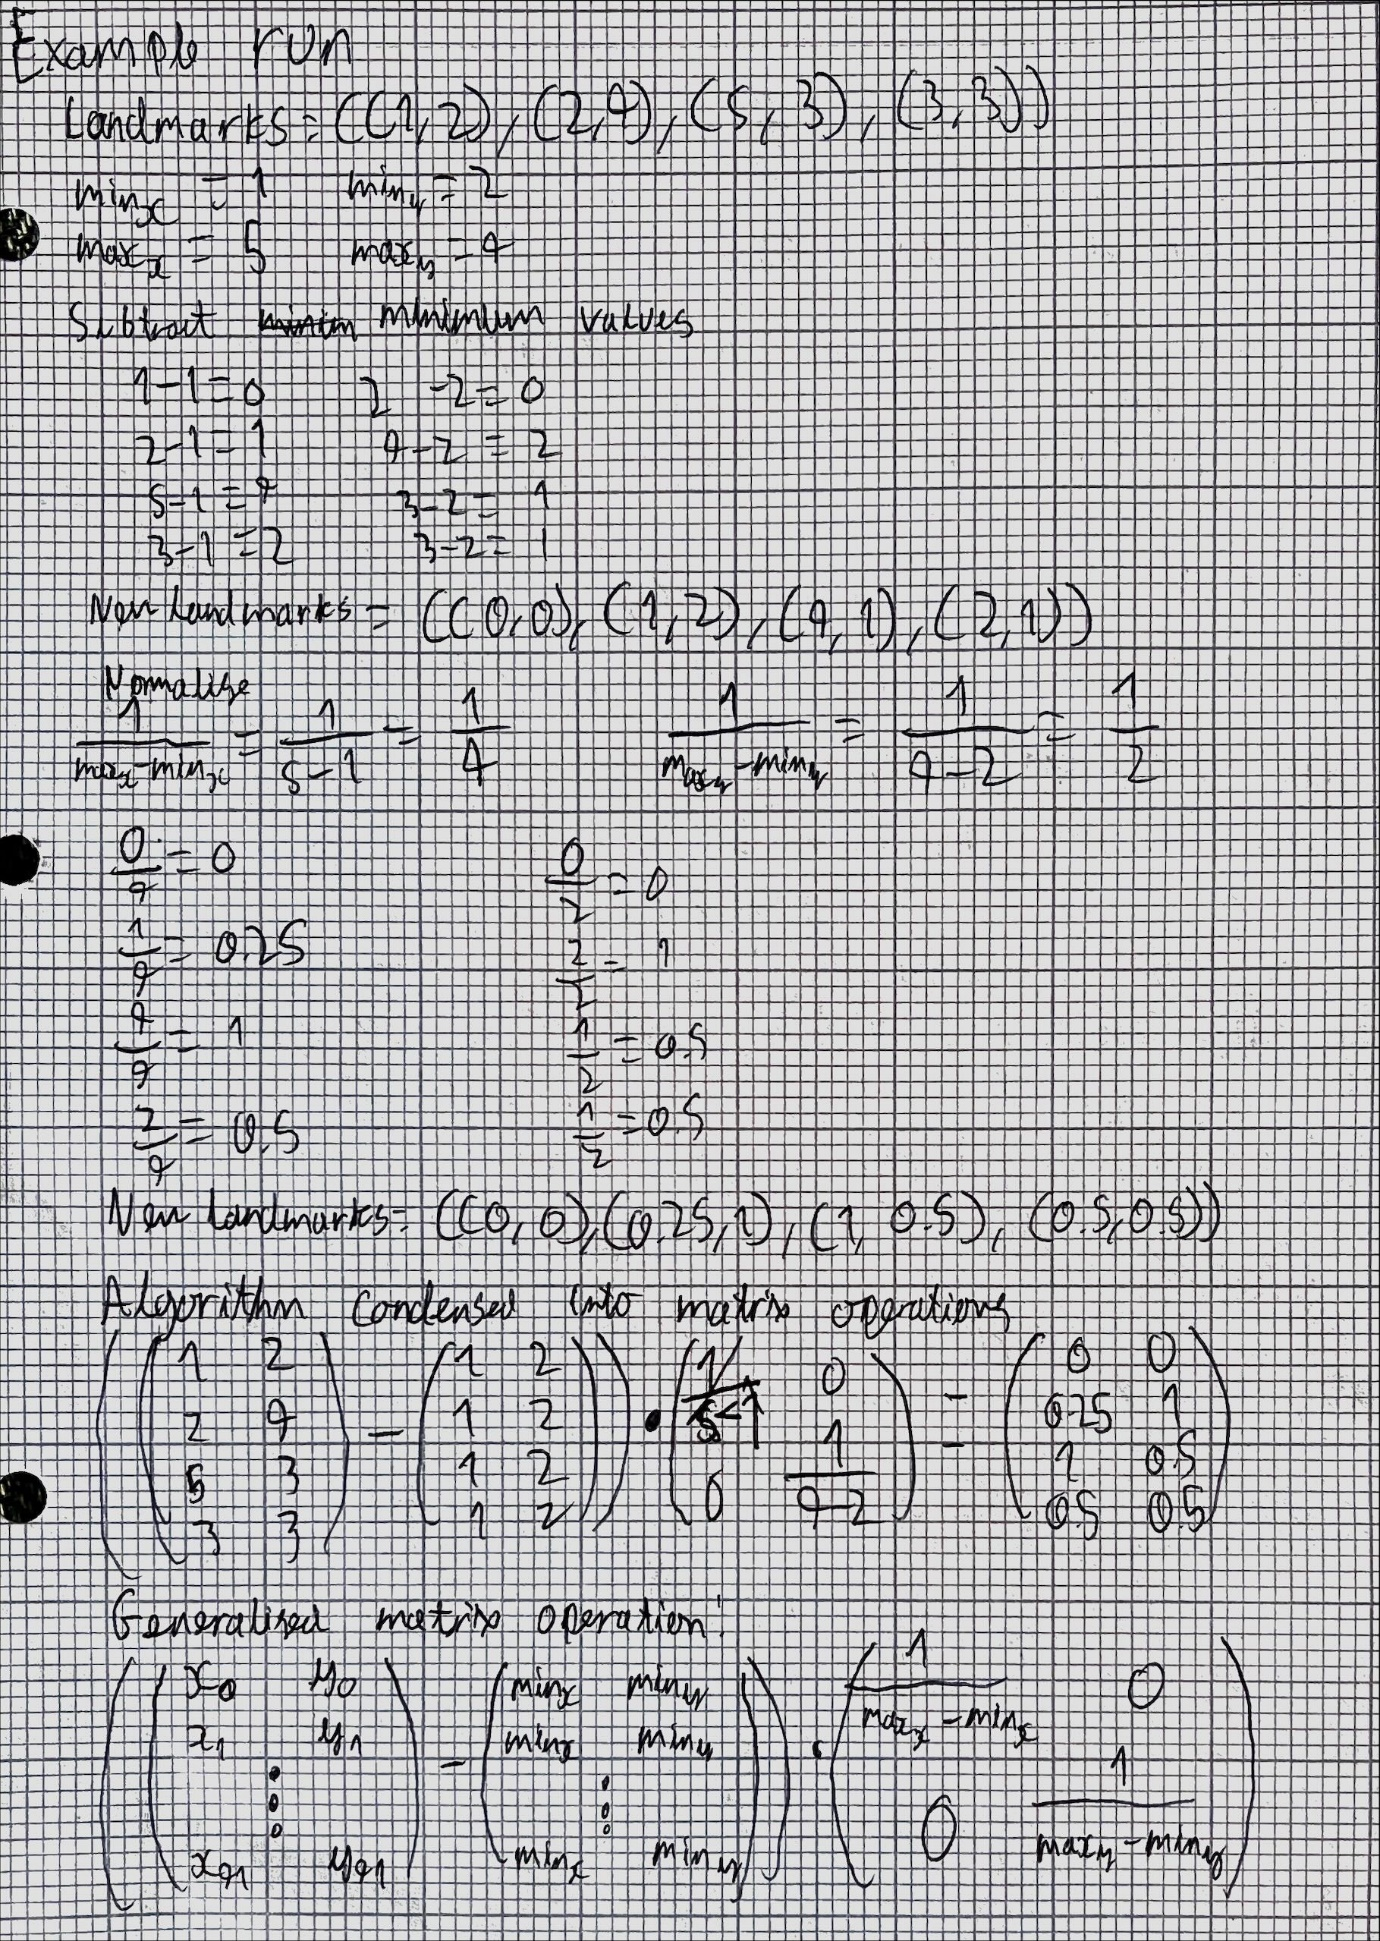 Example run
Landmarks = ((1,2), (2,4), (5,3), (3,3))
min_x = 1 min_y = 2
max_x = 5 max_y = 4
Subtract minim minimum values
1-1=0 2-2=0
2-1=1 4-2=2
5-1=4 3-2=1
3-1=2 3-2=1
New Landmarks = ((0,0), (1,2), (4,1), (2,1))
Normalise
1/(max_x-min_x) = 1/(5-1) = 1/4 1/(max_y-min_y) = 1/(4-2) = 1/2
0/4 = 0 0/2 = 0
1/4 = 0.25 2/2 = 1
4/4 = 1 1/2 = 0.5
2/4 = 0.5 1/2 = 0.5
New Landmarks = ((0,0),(0.25,1),(1,0.5),(0.5,0.5))
Algorithm condensed into matrix operations
((1 2) - (1 2)) • (1/(5-1) 0) = (0 0)
2 4 1 2 0 1/(4-2) 0.25 1
5 3 1 2 1 0.5
3 3 1 2 0.5 0.5
Generalised matrix operation:
((x_0 y_0) - (min_x min_y)) · (1/(max_x-min_x) 0)
x_1 y_1 min_x min_y
⋮ ⋮ 0 1/(max_y-min_y)
x_41 y_41 min_x min_y